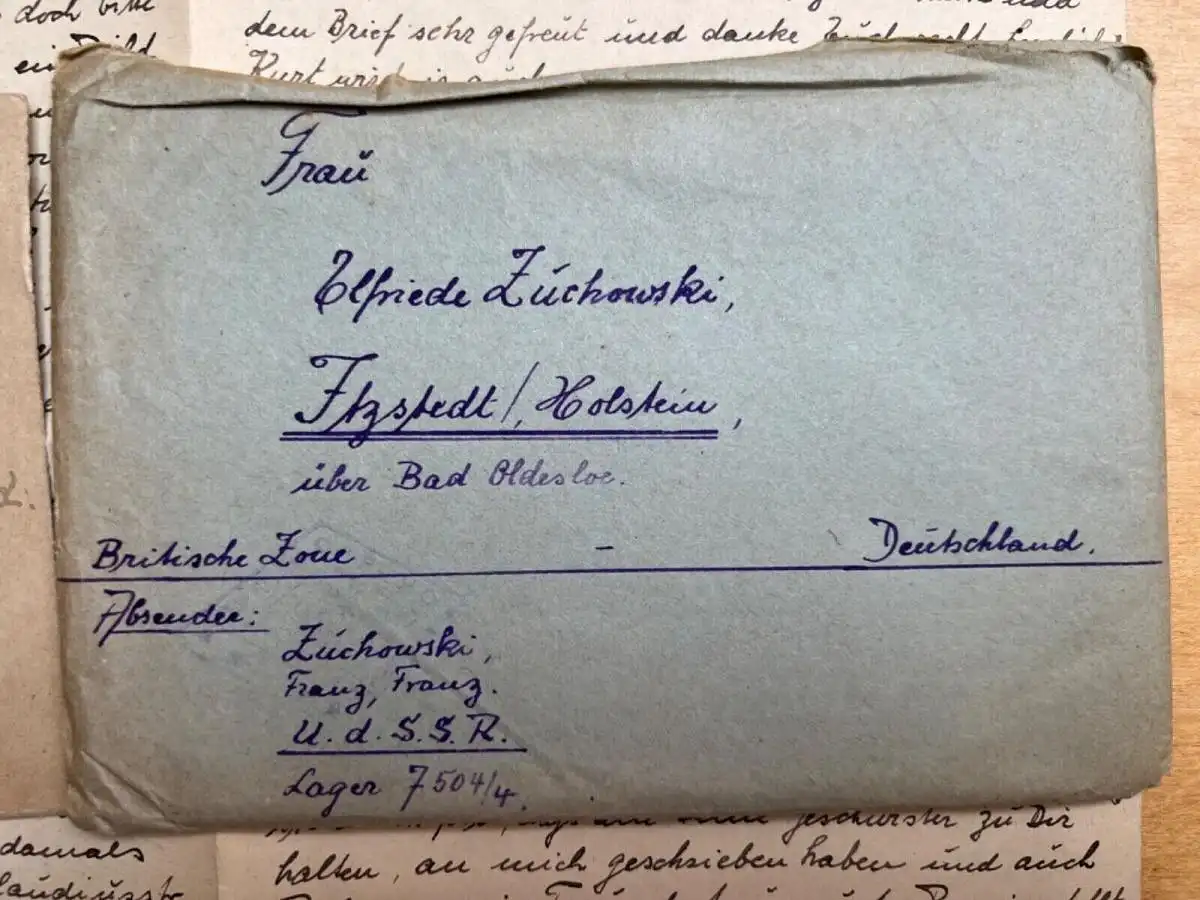 doch bitte
dem Brief sehr gefreut und danke Euch recht
Kurt wird
Frau
Elfriede Zuchowski,
Itzstedt/Holstein,
über Bad Oldesloe.
Britische Zone - Deutschland.
Absender:
Zuchowski,
Franz, Franz.
U.d.S.S.R.
Lager 7504/4.
geschwister zu Dir
halten, an mich geschrieben haben und auch
damals